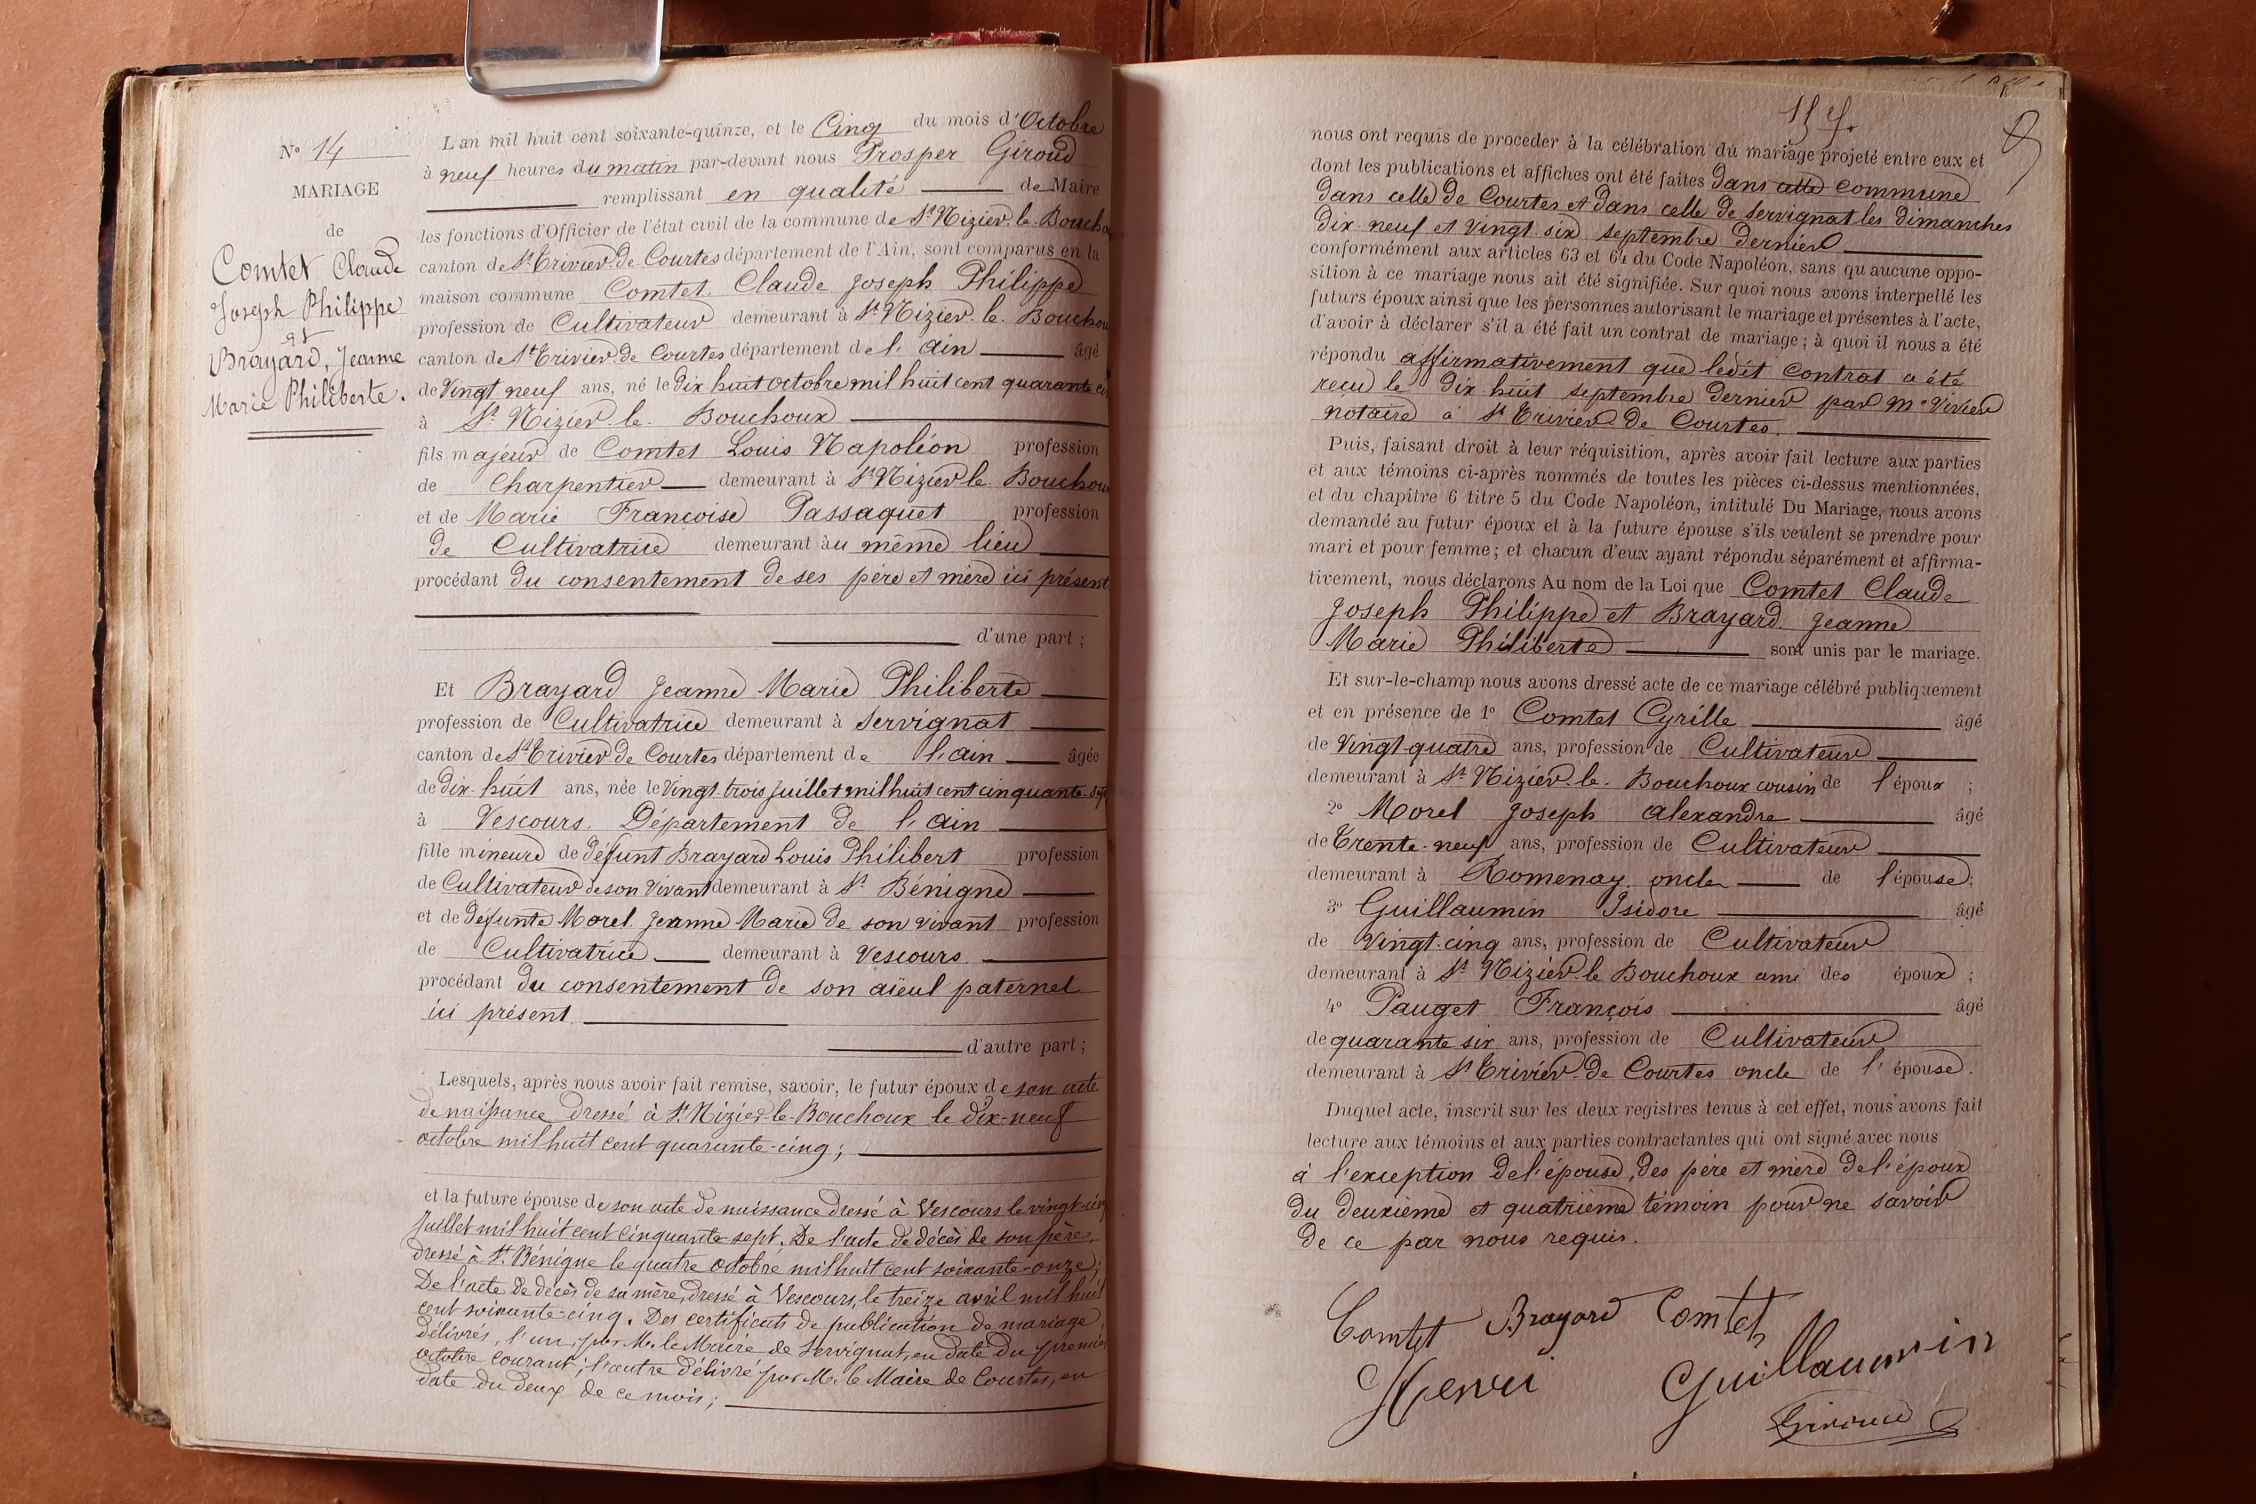 N° 14
MARIAGE
de
Comtet Claude
Joseph Philippe
et
Brayard, Jeanne
Marie Philiberte.
L'an mil huit cent soixante-quinze, et le Cinq du mois d'Octobre
à neuf heures du matin par-devant nous Prosper Giroud
remplissant en qualité de Maire
les fonctions d'Officier de l'état civil de la commune de St Nizier-le-Boucho
canton de St Trivier-de-Courtes département de l'Ain, sont comparus en la
maison commune Comtet Claude Joseph Philippe
profession de Cultivateur demeurant à St Nizier-le-Bouchou
canton de St Trivier de Courtes département de l'Ain âgé
de Vingt neuf ans, né le dix huit octobre mil huit cent quarante ci
à St Nizier-le-Bouchoux
fils majeur de Comtet Louis Napoléon profession
de Charpentier demeurant à St Nizier le Bouchou
et de Marie Françoise Passaquet profession
de Cultivatrice demeurant au même lieu
procédant du consentement de ses père et mère ici présent
d'une part ;
Et Brayard Jeanne Marie Philiberte
profession de Cultivatrice demeurant à Servignat
canton de St Trivier de Courtes département de l'ain âgée
de dix-huit ans, née le Vingt-trois Juillet mil huit cent cinquante-sept
à Vescours. Département de l'ain
fille mineure de défunt Brayard Louis Philibert profession
de Cultivateur de son vivant demeurant à St Bénigne
et de défunte Morel Jeanne Marie de son vivant profession
de Cultivatrice demeurant à Vescours
procédant du consentement de son aïeul paternel
ici présent
d'autre part ;
Lesquels, après nous avoir fait remise, savoir, le futur époux de son acte
de naissance dressé à St Nizier-le-Bouchoux le dix-neuf
octobre mil huit cent quarante-cinq ;
et la future épouse de son acte de naissance dressé à Vescours le vingt-cinq
Juillet mil huit cent cinquante-sept. De l'acte de décès de son père,
dressé à St Bénigne le quatre octobre mil huit cent soixante-onze ;
De l'acte de décès de sa mère, dressé à Vescours, le treize avril mil huit
cent soixante-cinq. Des certificats de publication de mariage,
délivrés, l'un, par Mr. le Maire de Servignat, en date du premier
octobre courant ; l'autre délivré par Mr. le Maire de Courtes, en
date du deux de ce mois ;
nous ont requis de proceder à la célébration du mariage projeté entre eux et
dont les publications et affiches ont été faites dans cette commune
dans celle de Courtes et dans celle de Servignat les dimanches
dix-neuf et vingt-six septembre dernier
conformément aux articles 63 et 64 du Code Napoléon, sans qu'aucune oppo-
sition à ce mariage nous ait été signifiée. Sur quoi nous avons interpellé les
futurs époux ainsi que les personnes autorisant le mariage et présentes à l'acte,
d'avoir à déclarer s'il a été fait un contrat de mariage ; à quoi il nous a été
répondu affirmativement que ledit contrat a été
reçu le dix-huit septembre dernier par Me Vivier
notaire à St Trivier de Courtes.
Puis, faisant droit à leur réquisition, après avoir fait lecture aux parties
et aux témoins ci-après nommés de toutes les pièces ci-dessus mentionnées,
et du chapitre 6 titre 5 du Code Napoléon, intitulé Du Mariage, nous avons
demandé au futur époux et à la future épouse s'ils veulent se prendre pour
mari et pour femme ; et chacun d'eux ayant répondu séparément et affirma-
tivement, nous déclarons Au nom de la Loi que Comtet Claude
Joseph Philippe et Brayard Jeanne
Marie Philiberte sont unis par le mariage.
Et sur-le-champ nous avons dressé acte de ce mariage célébré publiquement
et en présence de 1° Comtet Cyrille âgé
de Vingt-quatre ans, profession de Cultivateur
demeurant à St Nizier-le-Bouchoux cousin de l'époux ;
2° Morel Joseph Alexandre âgé
de Trente-neuf ans, profession de Cultivateur
demeurant à Romenay oncle de l'épouse ;
3° Guillaumin Isidore âgé
de Vingt-cinq ans, profession de Cultivateur
demeurant à St Nizier-le-Bouchoux ami des époux ;
4° Pauget François âgé
de quarante six ans, profession de Cultivateur
demeurant à St Trivier-de-Courtes oncle de l'épouse.
Duquel acte, inscrit sur les deux registres tenus à cet effet, nous avons fait
lecture aux témoins et aux parties contractantes qui ont signé avec nous
à l'exception de l'épouse, des père et mère de l'époux
du deuxième et quatrième témoin pour ne savoir
de ce par nous requis.
Comtet Brayard Comtet
Henri Guillaumin
Giroud